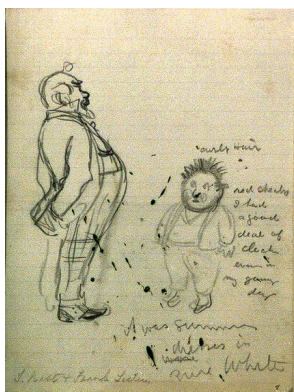 curly Hair
red cheeks
I had
a good
deal of
cheek
even in
my young
days
I was summer
dresses in
pure White